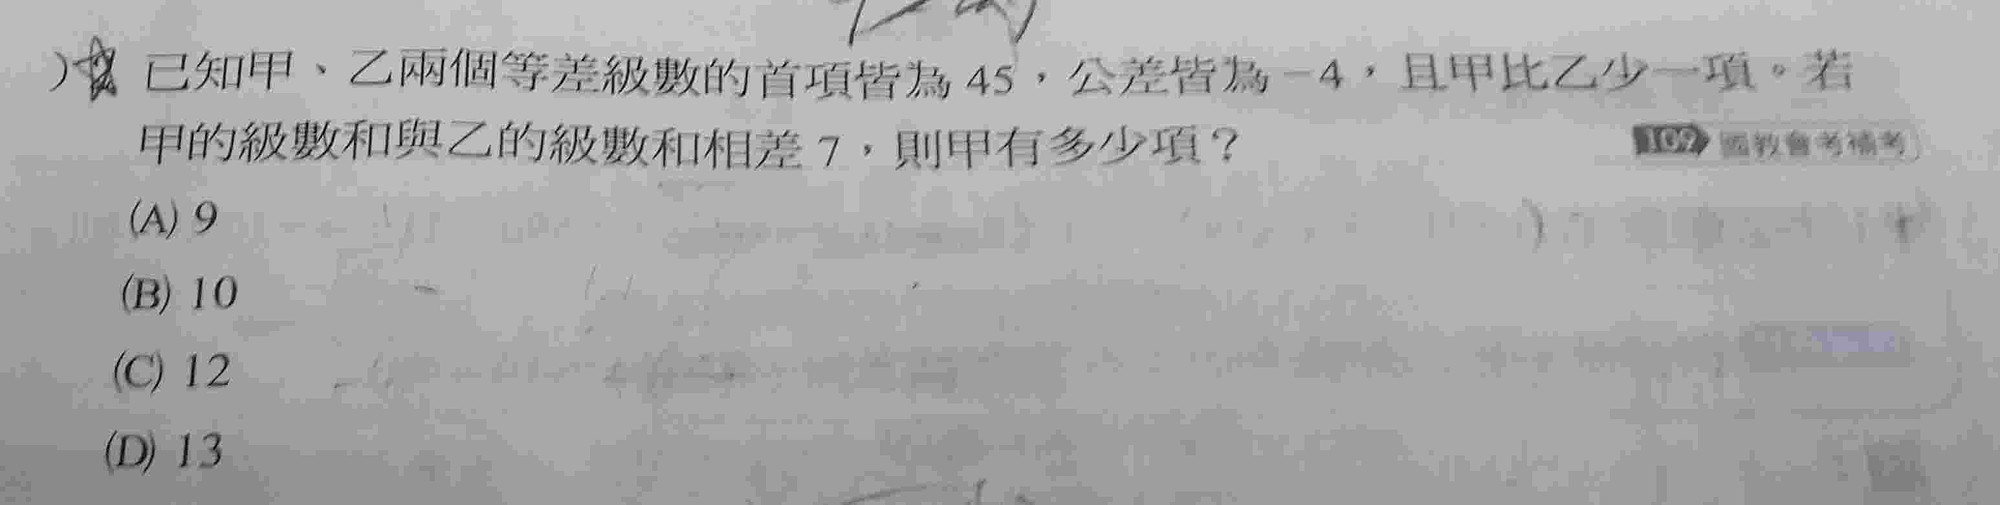 已知甲、乙兩個等差級數的首項皆為 45，公差皆為 −4，且甲比乙少一項。若
甲的級數和與乙的級數和相差 7，則甲有多少項？
102 國教會考補考
(A) 9
(B) 10
(C) 12
(D) 13